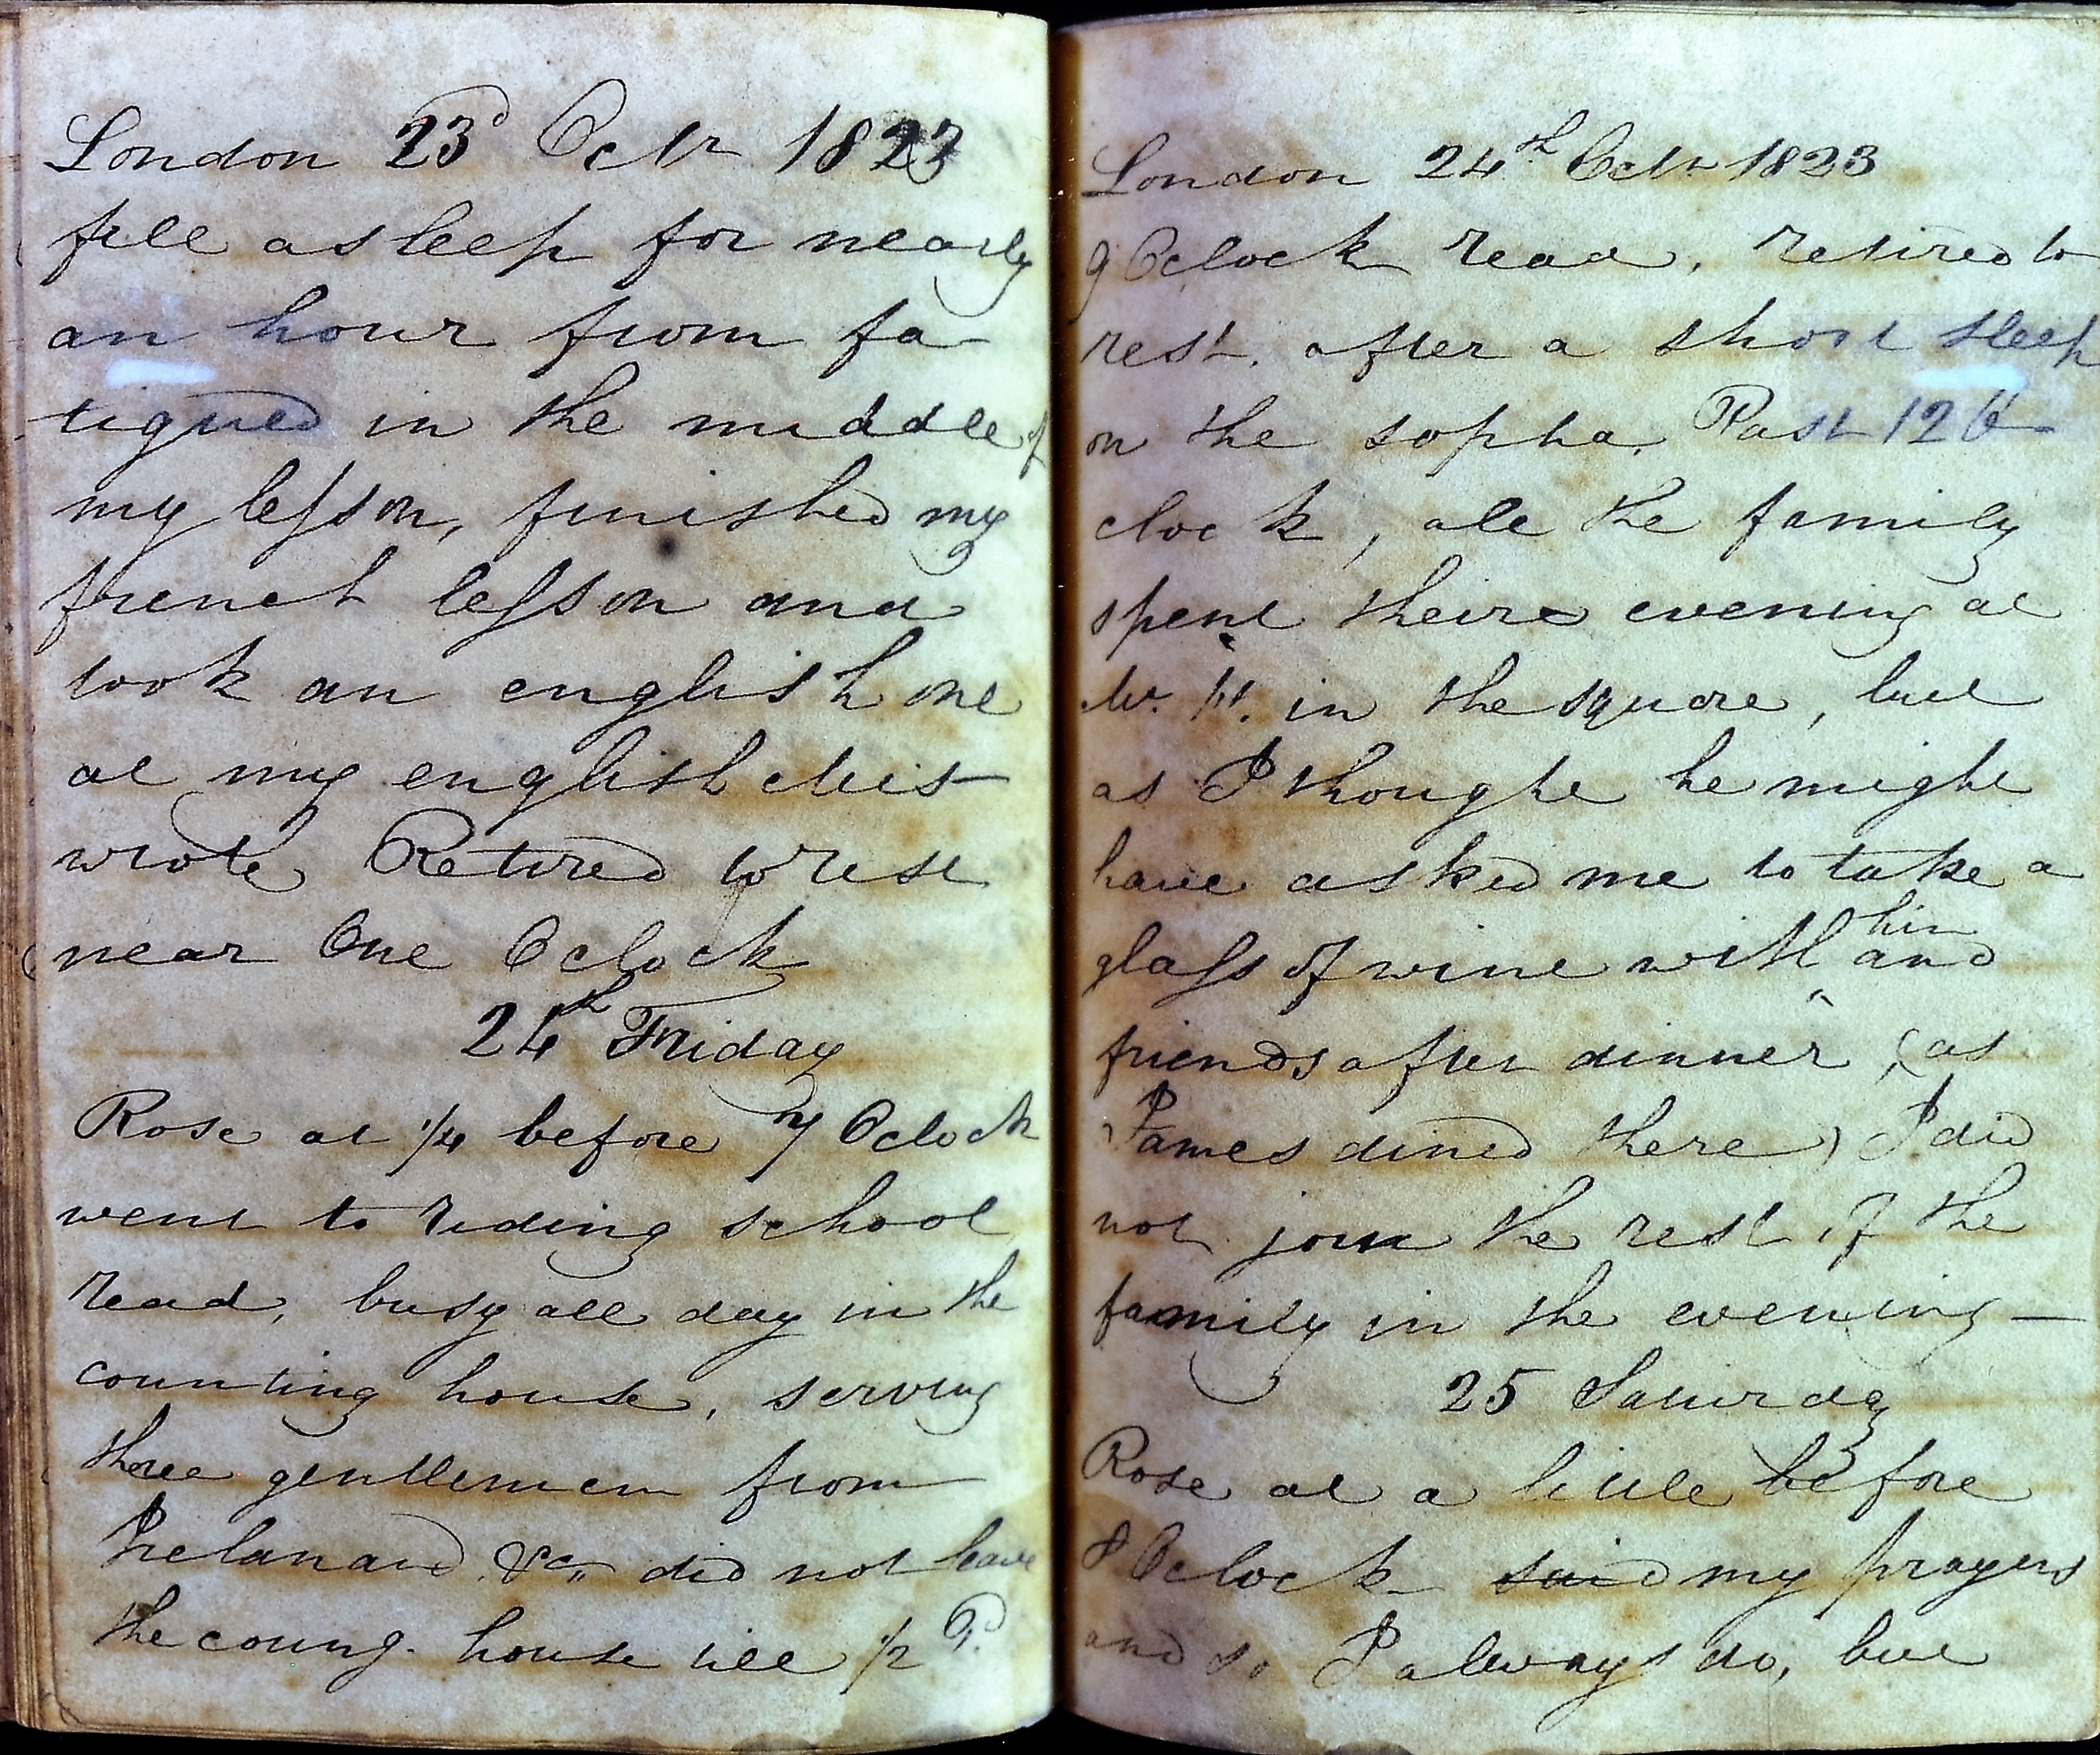 London 23d Octr 1823
fell asleep for nearly
an hour from fa-
tigued in the middle of
my lesson, finished my
french lesson and
took an english one
at my english Mis-
wrote Retired to rest
near One Oclock
24th Friday
Rose at 1/4 before 7 Oclock
went to riding school
read, busy all day in the
counting house, serving
three gentlemen from
Irelanand &c,, did not leave
the coung. house till 1/2 P.
London 24th Octr 1823
9 Oclock read, retired to
rest, after a short sleep
on the sopha. Past 12 O-
clock, all the family
spent theire evening at
Mr. H. in the square, but
as I thought he might
have asked me to take a
glass of wine with him and
friends after dinner, (as
James dined there) I did
not join the rest of the
family in the evening —
25 Saturday
Rose at a little before
8 Oclock said my prayers
and so I always do, but